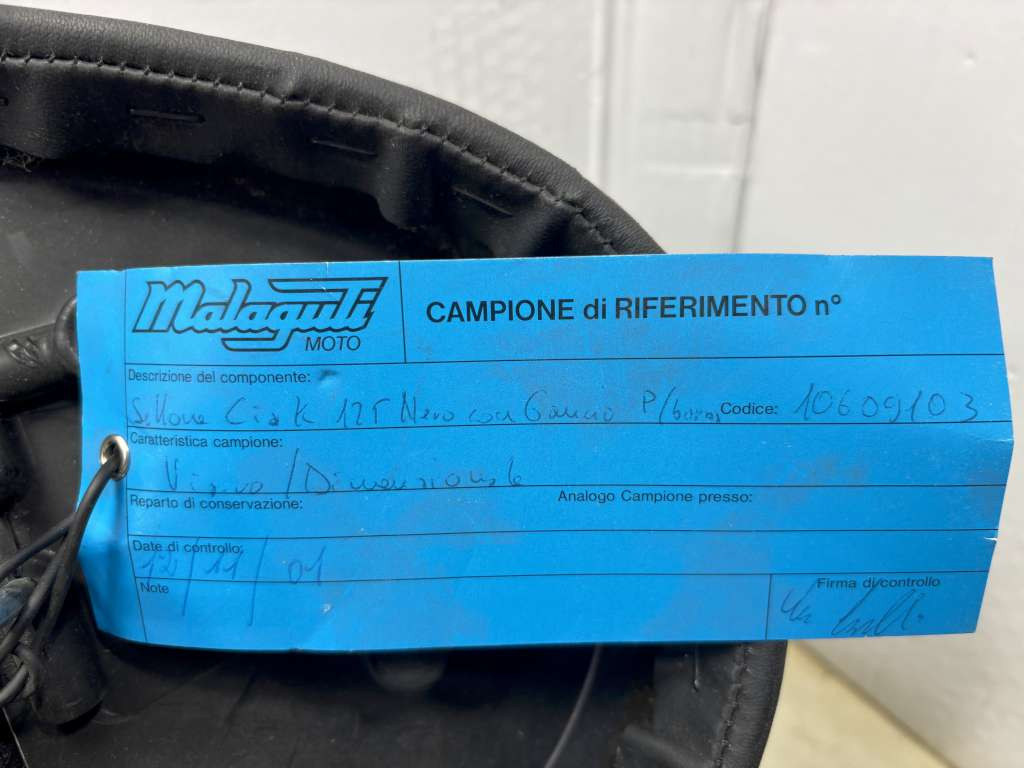 Malaguti
MOTO
CAMPIONE di RIFERIMENTO n°
Descrizione del componente:
Sellone Ciak 125 Nero con Gancio P/borse
Codice: 10609103
Caratteristica campione:
Visivo/Dimensionale
Reparto di conservazione:
Analogo Campione presso:
Date di controllo:
12/11/01
Note
Firma di controllo